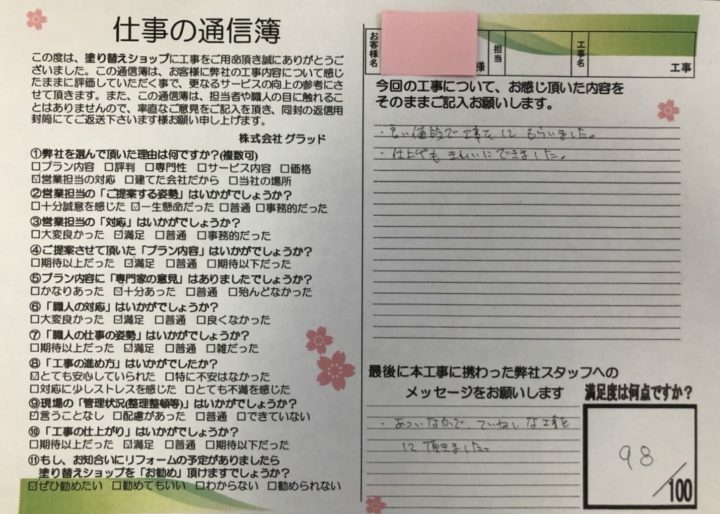 仕事の通信簿
この度は、塗り替えショップに工事をご用命頂き誠にありがとうご
ざいました。この通信簿は、お客様に弊社の工事内容について感じ
たままに評価していただく事で、更なるサービスの向上の参考にさ
せて頂きます。また、この通信簿は、担当者や職人の目に触れるこ
とはありませんので、率直なご意見をご記入を頂き、同封の返信用
封筒にてご返送下さいます様お願い申し上げます。
株式会社 グラッド
①弊社を選んで頂いた理由は何ですか?(複数可)
□プラン内容 □評判 □専門性 □サービス内容 □価格
☑営業担当の対応 □建てた会社だから □当社の場所
②営業担当の「ご提案する姿勢」はいかがでしょうか?
□十分誠意を感じた ☑一生懸命だった □普通 □事務的だった
③営業担当の「対応」はいかがでしょうか?
□大変良かった ☑満足 □普通 □事務的だった
④ご提案させて頂いた「プラン内容」はいかがでしょうか?
□期待以上だった ☑満足 □普通 □期待以下だった
⑤プラン内容に「専門家の意見」はありましたでしょうか?
□かなりあった ☑十分あった □普通 □殆んどなかった
⑥「職人の対応」はいかがでしょうか?
□大変良かった ☑満足 □普通 □良くなかった
⑦「職人の仕事の姿勢」はいかがでしょうか?
□期待以上だった ☑満足 □普通 □雑だった
⑧「工事の進め方」はいかがでしたか?
☑とても安心していられた □特に不安はなかった
□対応に少しストレスを感じた □とても不満を感じた
⑨現場の「管理状況(整理整頓等)」はいかがでしょうか?
☑言うことなし □配慮があった □普通 □できていない
⑩「工事の仕上がり」はいかがでしょうか?
□期待以上だった ☑満足 □普通 □期待以下だった
⑪もし、お知合いにリフォームの予定がありましたら
塗り替えショップを「お勧め」頂けますでしょうか?
☑ぜひ勧めたい □勧めてもいい □わからない □勧められない
お客様名
様
担当
工事名
工事
今回の工事について、お感じ頂いた内容を
そのままご記入お願いします。
・良い値段で工事をしてもらいました。
・仕上りもきれいにできました。
最後に本工事に携わった弊社スタッフへの
メッセージをお願いします
・あついなかで、ていねいな工事を
して頂きました。
満足度は何点ですか?
98
/100